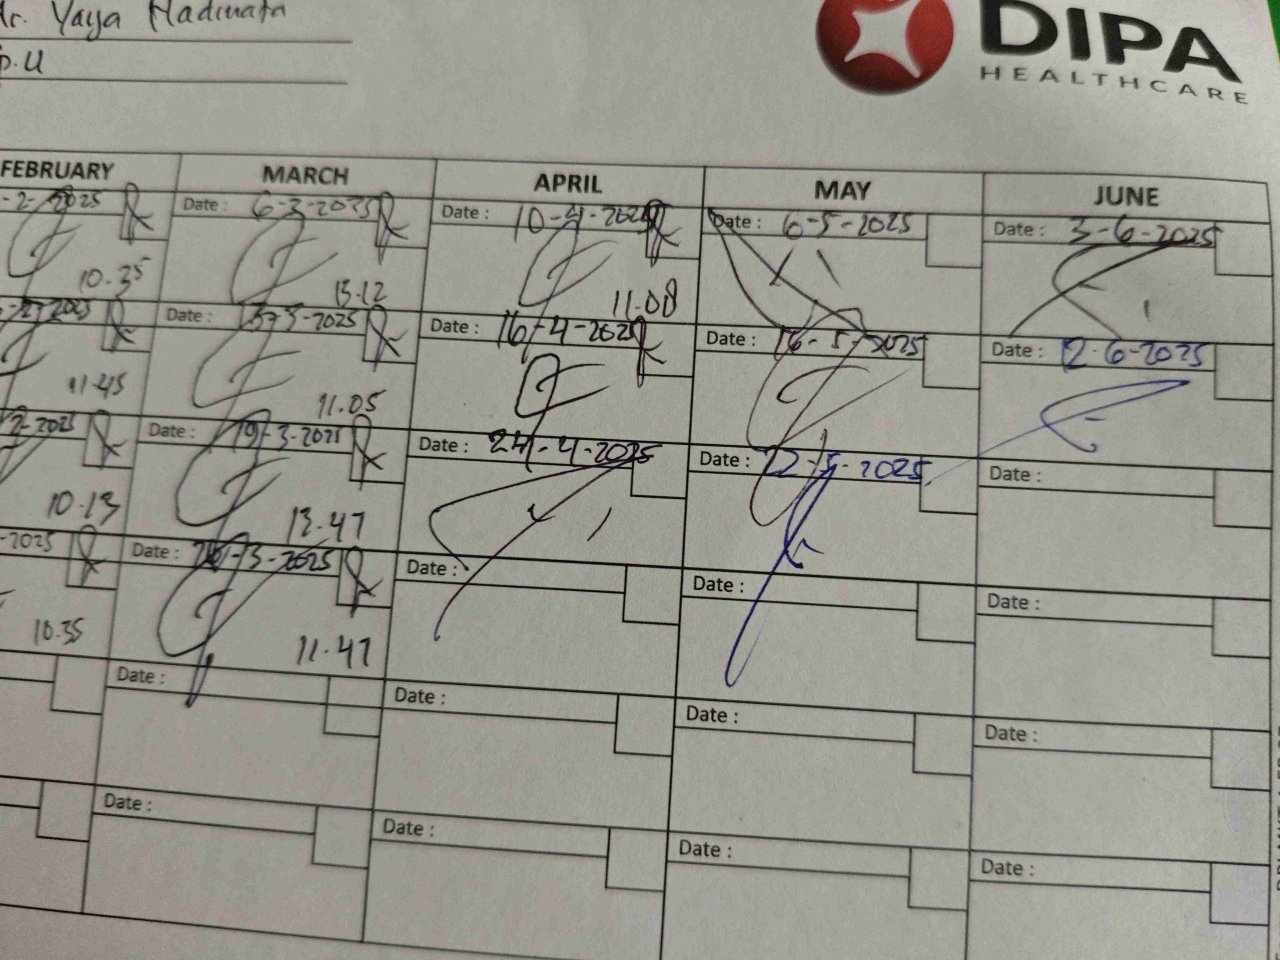 Dr. Yaya Hadinata
Sp.U
DIPA
HEALTHCARE
FEBRUARY MARCH APRIL MAY JUNE
-2-2025 Date : 6-3-2025 Date : 10-4-2025 Date : 6-5-2025 Date : 3-6-2025
10.35 13.12 11.08
-2-2025 Date : 13-3-2025 Date : 16-4-2025 Date : 16-5-2025 Date : 12-6-2025
11.45 11.05
-2-2025 Date : 19-3-2025 24-4-2025 Date : 22-5-2025 Date :
Date :
10.13 13.47
-2025 Date : 26-3-2025 Date : Date : Date :
10.35 11.47
Date : Date : Date : Date :
Date : Date : Date : Date :